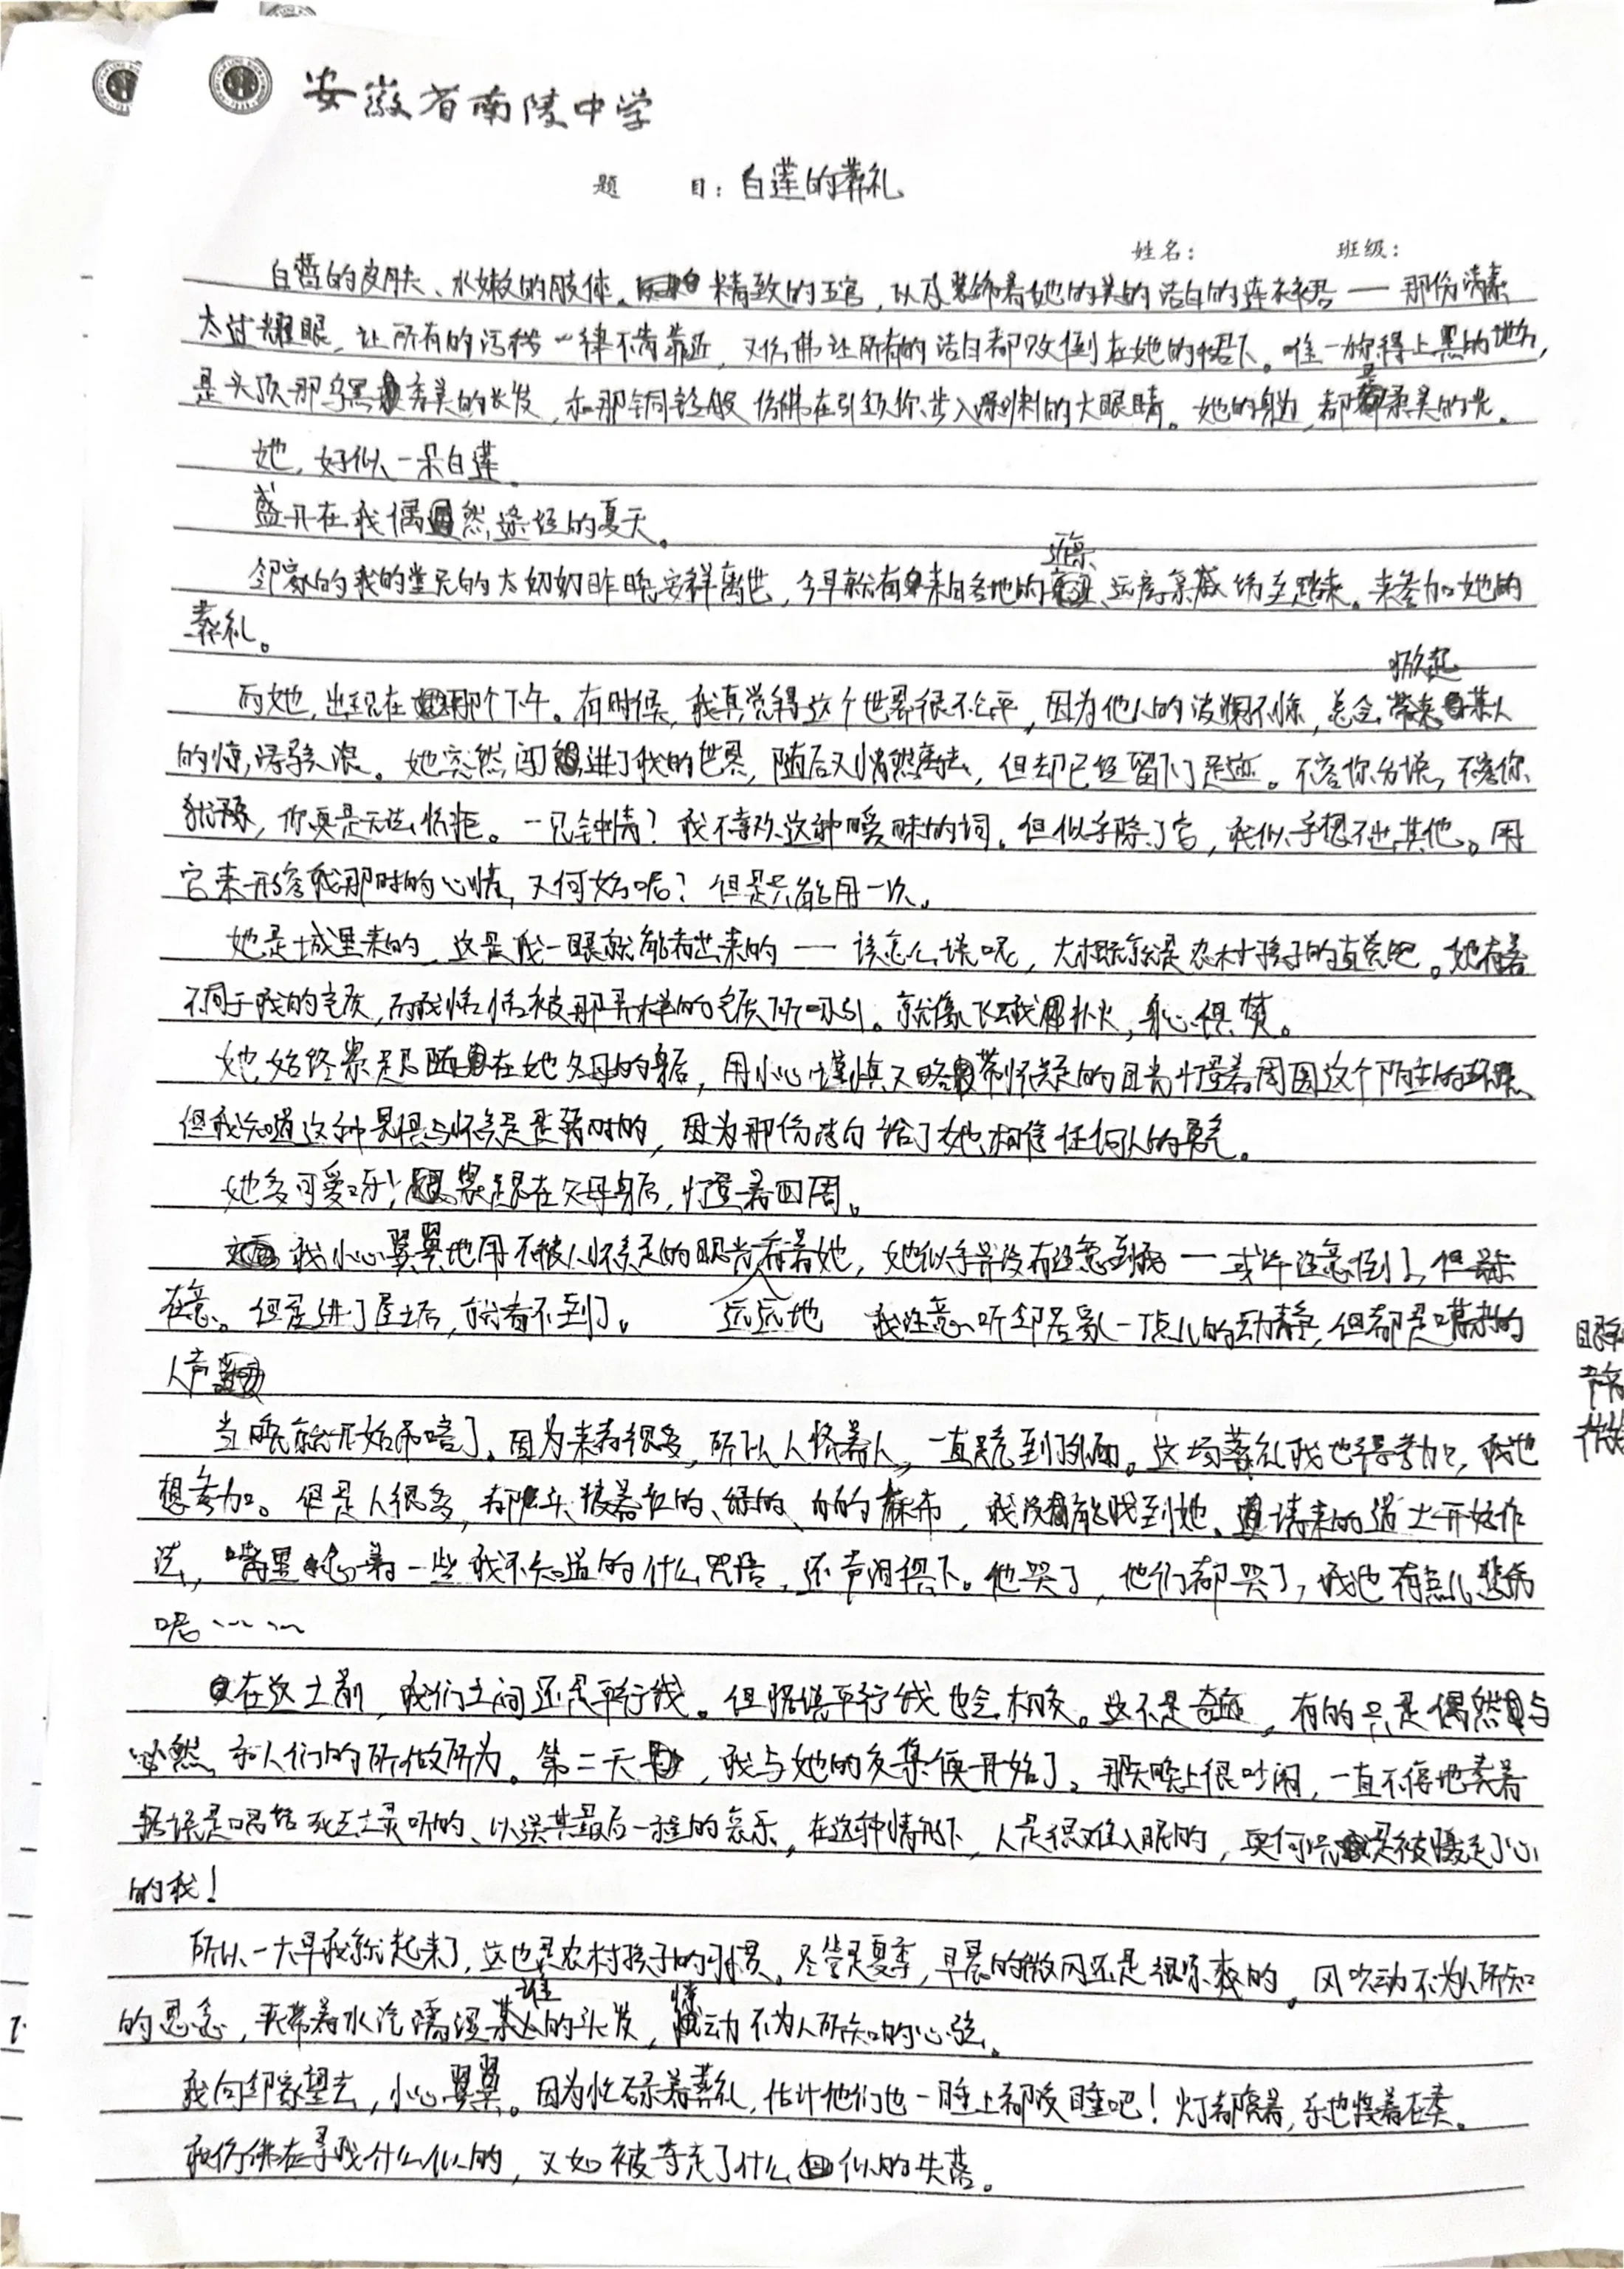 安徽省南陵中学
题 目：白莲的葬礼
姓名： 班级：
白皙的皮肤、水嫩的肢体、精致的五官，以及装饰着她的美的洁白的连衣裙——那份清素
太过耀眼，让所有的污秽一律不肯靠近，又仿佛让所有的洁白都败倒在她的裙下。唯一称得上黑的地方，
是头顶那乌黑秀美的长发，和那铜铃般仿佛在引领你步入深渊的大眼睛。她的身边，都是柔美的光。
她，好似一朵白莲。
盛开在我偶然途经的夏天。
邻家的我的堂兄的太奶奶昨晚安祥离世，今早就有来自各地的近亲、远房亲戚纷至踏来。来参加她的
葬礼。
而她，出现在那个下午。有时候，我真觉得这个世界很不公平，因为他人的波澜不惊，总会掀起某人
的惊涛骇浪。她突然闯进了我的世界，随后又悄然离去，但却已经留下了足迹。不容你分说，不容你
犹豫，你真是无法抗拒。一见钟情？我不喜欢这种暧昧的词。但似乎除了它，我似乎想不出其他。用
它来形容我那时的心情，又何妨呢？但是只能用一次。
她是城里来的，这是我一眼就能看出来的——该怎么说呢，大概就是农村孩子的直觉吧。她有着
不同于我的气质，而我恰恰被那异样的气质所吸引。就像飞蛾扑火，身心俱焚。
她始终紧紧跟随在她父母的身后，用小心谨慎又略带怀疑的目光打量着周围这个陌生的环境
但我知道这种畏惧与怀疑是暂时的，因为那份洁白给了她相信任何人的勇气。
她多可爱呀！紧跟在父母身后，打量着四周。
我小心翼翼地用不被人怀疑的眼光远远地看着她，她似乎并没有注意到我——或许注意到了，但
在意。但是进了屋之后，就看不到了。 我注意听邻居家一顶点儿的动静，但都是嘈杂的
人声
当晚就开始吊唁了。因为来者很多，所以人挤着人，一直跪到了外面。这场葬礼我也得参加，我也
想参加。但是人很多，都头披着红的、绿的、白的麻布，我没能找到她、请来的道士开始作
法，嘴里念着一些我不知道的什么咒语，还声泪俱下。他哭了，他们都哭了，我也有点儿悲伤
呢……
在这之前，我们之间还是平行线。但据说平行线也会相交。这不是奇迹，有的只是偶然与
必然，和人们的所做所为。第二天，我与她的交集便开始了。那天晚上很吵闹，一直不停地奏着
据说是唱给死去之灵听的、以送其最后一程的哀乐，在这种情形下，人是很难入眠的，更何况是被摄走了心
的我！
所以一大早我就起来了，这也是农村孩子的习惯。尽管是夏季，早晨的微风还是很凉爽的。风吹动不为人所知
的思念，夹带着水汽濡湿谁的头发，撩动不为人所知的心弦。
我向邻家望去，小心翼翼。因为忙碌着葬礼，估计他们也一晚上都没睡吧！灯都亮着，乐也接着在奏。
我仿佛在寻找什么似的，又如被夺走了什么似的失落。